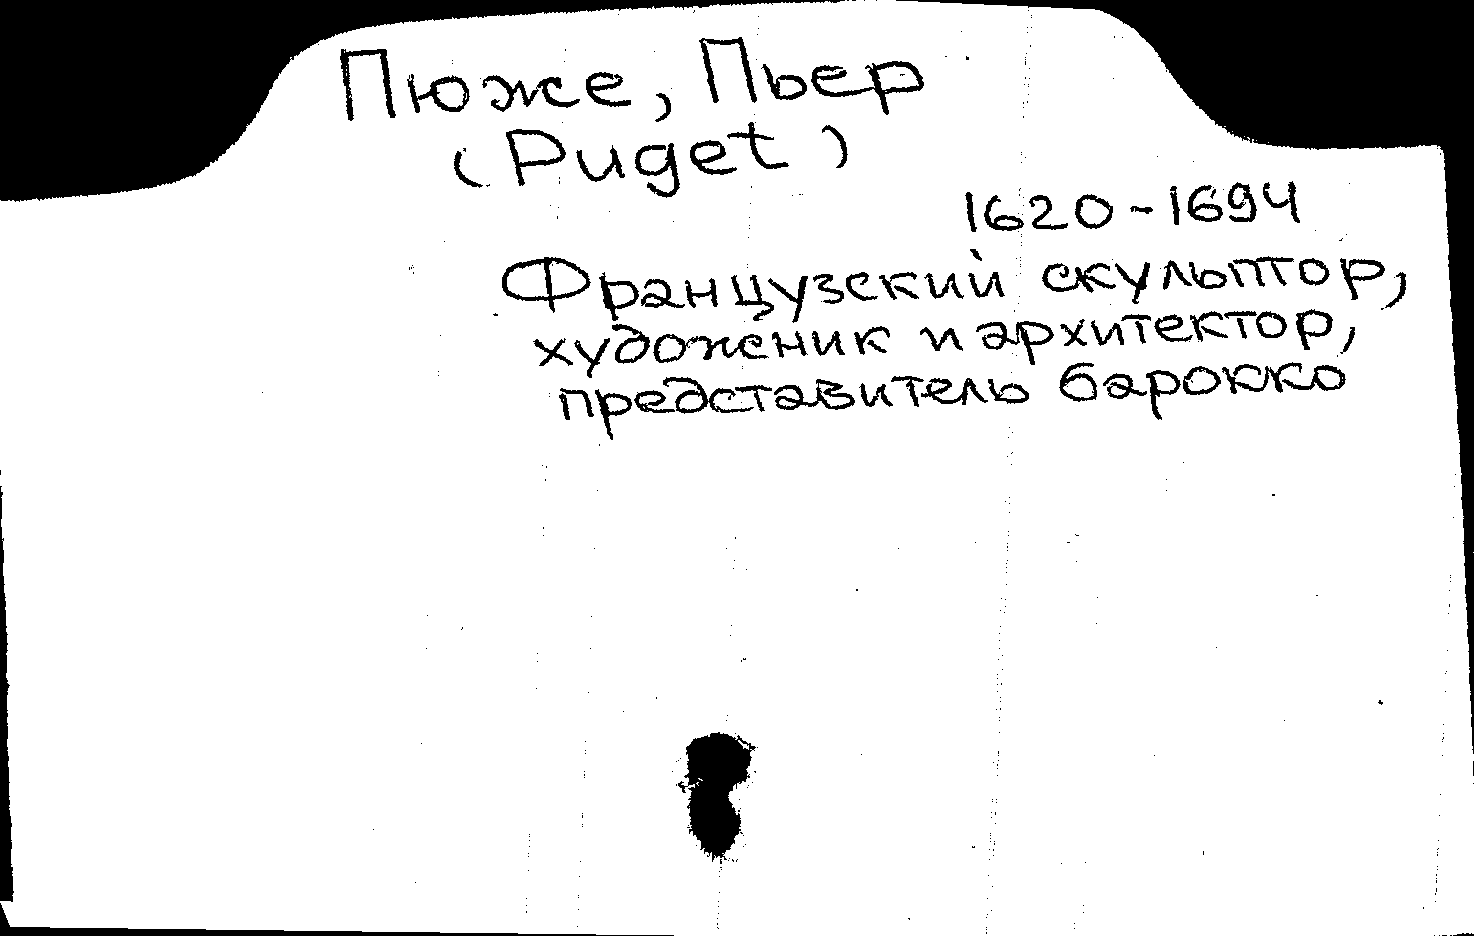 Пюже, Пьер
(Puget)
1620-1694
Французский скульптор,
художник и архитектор,
представитель барокко